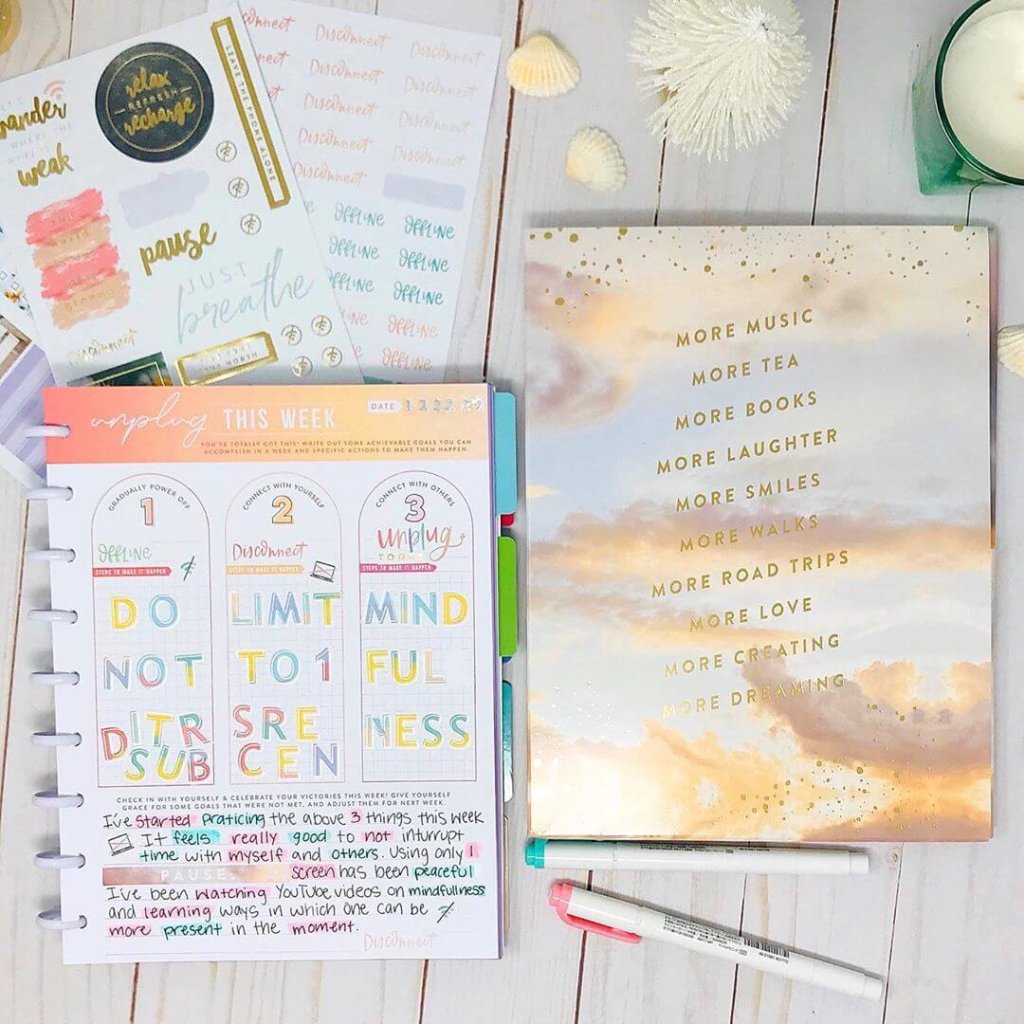 wander
weak
relax
REFRESH
recharge
LEAVE THE PHONE ALONE
pause
JUST
breathe
Disconnect
Disconnect
Disconnect
Disconnect
Disconnect
Disconnect
Disconnect
Disconnect
Disconnect
OFFLINE
OFFLINE
OFFLINE
OFFLINE
OFFLINE
OFFLINE
OFFLINE
OFFLINE
unplug THIS WEEK
DATE
YOU'VE TOTALLY GOT THIS! WRITE OUT SOME ACHIEVABLE GOALS YOU CAN
ACCOMPLISH IN A WEEK AND SPECIFIC ACTIONS TO MAKE THEM HAPPEN.
GRADUALLY POWER OFF
1
OFFLINE
STEPS TO MAKE IT HAPPEN
DO
NOT
DITR
SUB
CONNECT WITH YOURSELF
2
Disconnect
STEPS TO MAKE IT HAPPEN
LIMIT
TO 1
SRE
CEN
CONNECT WITH OTHERS
3
unplug
STEPS TO MAKE IT HAPPEN
MIND
FUL
NESS
CHECK IN WITH YOURSELF & CELEBRATE YOUR VICTORIES THIS WEEK! GIVE YOURSELF
GRACE FOR SOME GOALS THAT WERE NOT MET, AND ADJUST THEM FOR NEXT WEEK.
I've started praticing the above 3 things this week
It feels really good to not inturrupt
time with myself and others. Using only 1
PAUSE.
screen has been peaceful
I've been watching YouTube videos on mindfullness
and learning ways in which one can be
more present in the moment.
Disconnect
MORE MUSIC
MORE TEA
MORE BOOKS
MORE LAUGHTER
MORE SMILES
MORE WALKS
MORE ROAD TRIPS
MORE LOVE
MORE CREATING
MORE DREAMING